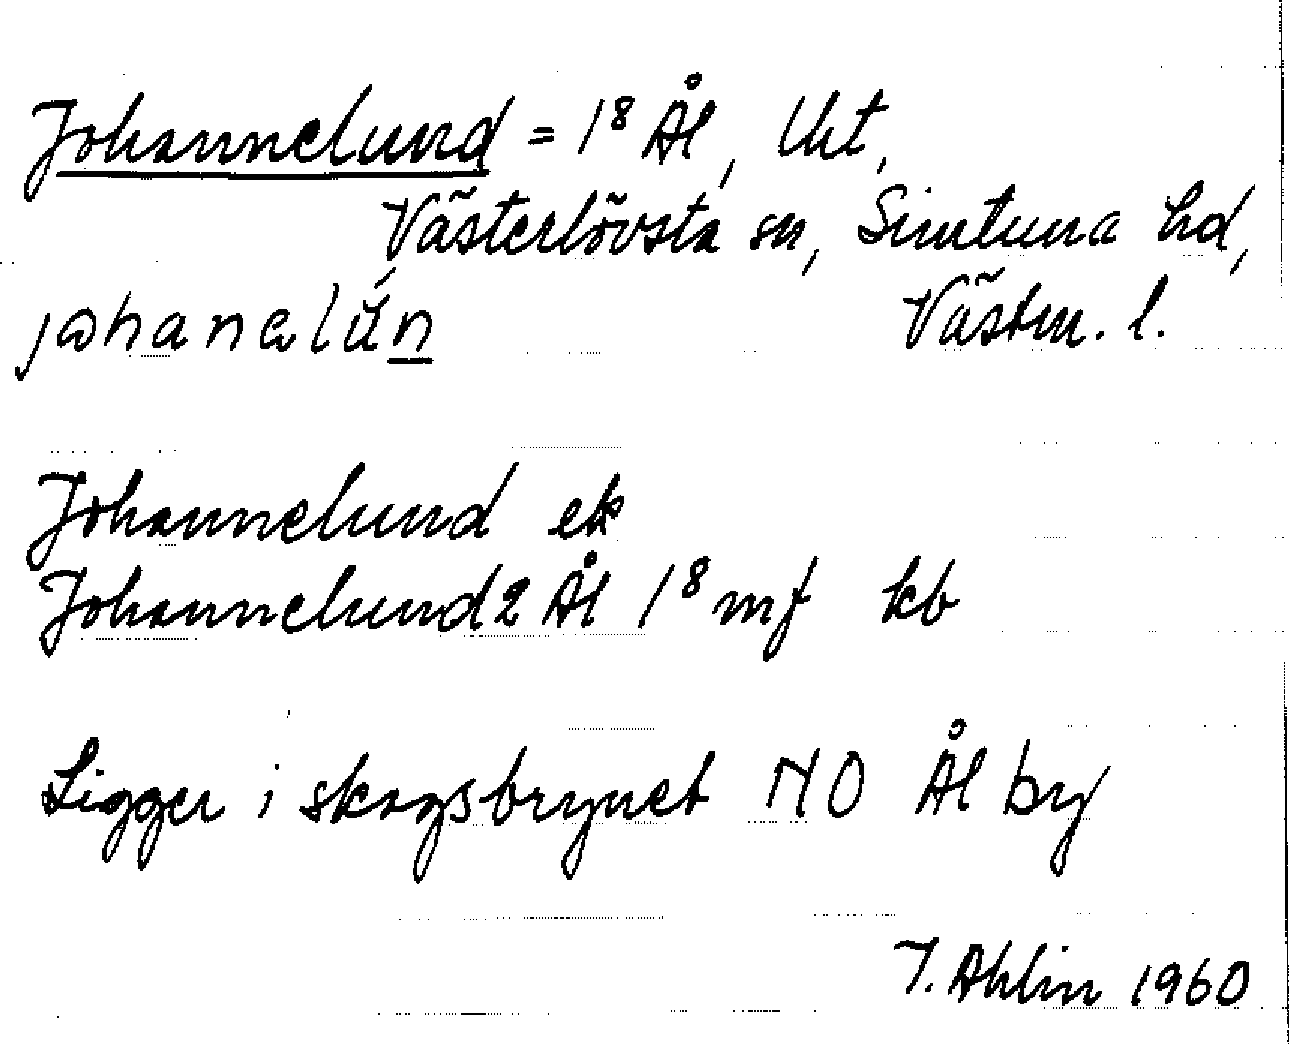 Johannelund = 1⁸ Ål, lht,
Västerlövsta sn, Simtuna hd,
johanelún Västm. l.
Johannelund ek
Johannelund 2 Ål 1⁸ mf kb
Ligger i skogsbrynet NO Ål by
T. Ahlin 1960